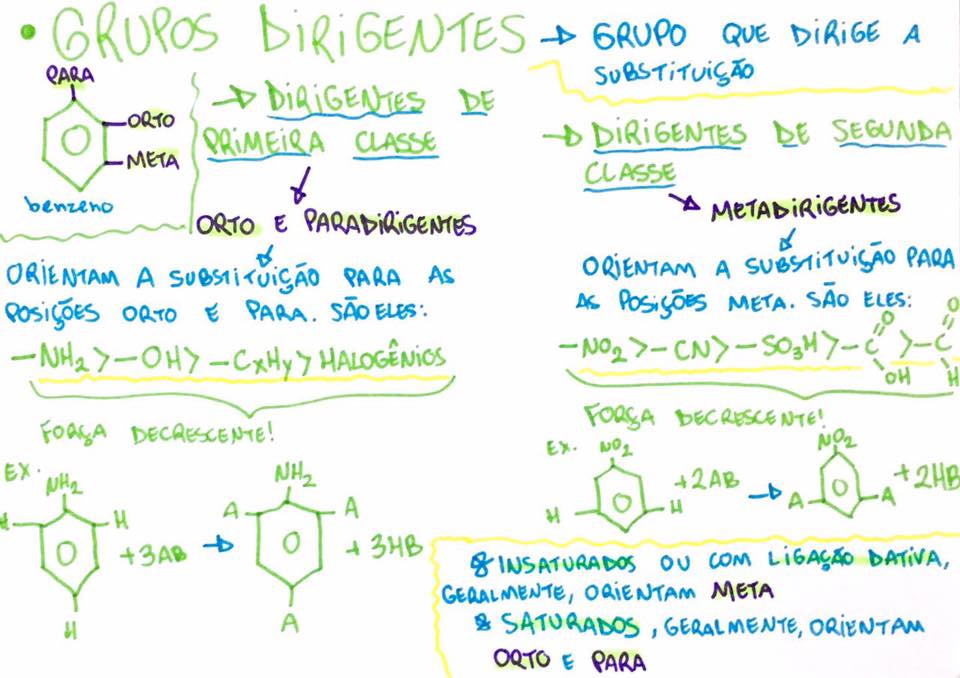 • GRUPOS DIRIGENTES
→ GRUPO QUE DIRIGE A
SUBSTITUIÇÃO
PARA
ORTO
META
benzeno
→ DIRIGENTES DE
PRIMEIRA CLASSE
ORTO E PARADIRIGENTES
ORIENTAM A SUBSTITUIÇÃO PARA AS
POSIÇÕES ORTO E PARA. SÃO ELES:
—NH₂ > —OH > —CxHy > HALOGÊNIOS
FORÇA DECRESCENTE!
EX.
NH₂
H
H
H
+3AB →
NH₂
A
A
A
+ 3HB
→ DIRIGENTES DE SEGUNDA
CLASSE
METADIRIGENTES
ORIENTAM A SUBSTITUIÇÃO PARA
AS POSIÇÕES META. SÃO ELES:
—NO₂ > —CN > —SO₃H > —C > —C
O
OH
O
H
FORÇA DECRESCENTE!
EX.
NO₂
H
H
+2AB →
NO₂
A
A
+2HB
* INSATURADOS OU COM LIGAÇÃO DATIVA,
GERALMENTE, ORIENTAM META
* SATURADOS, GERALMENTE, ORIENTAM
ORTO E PARA